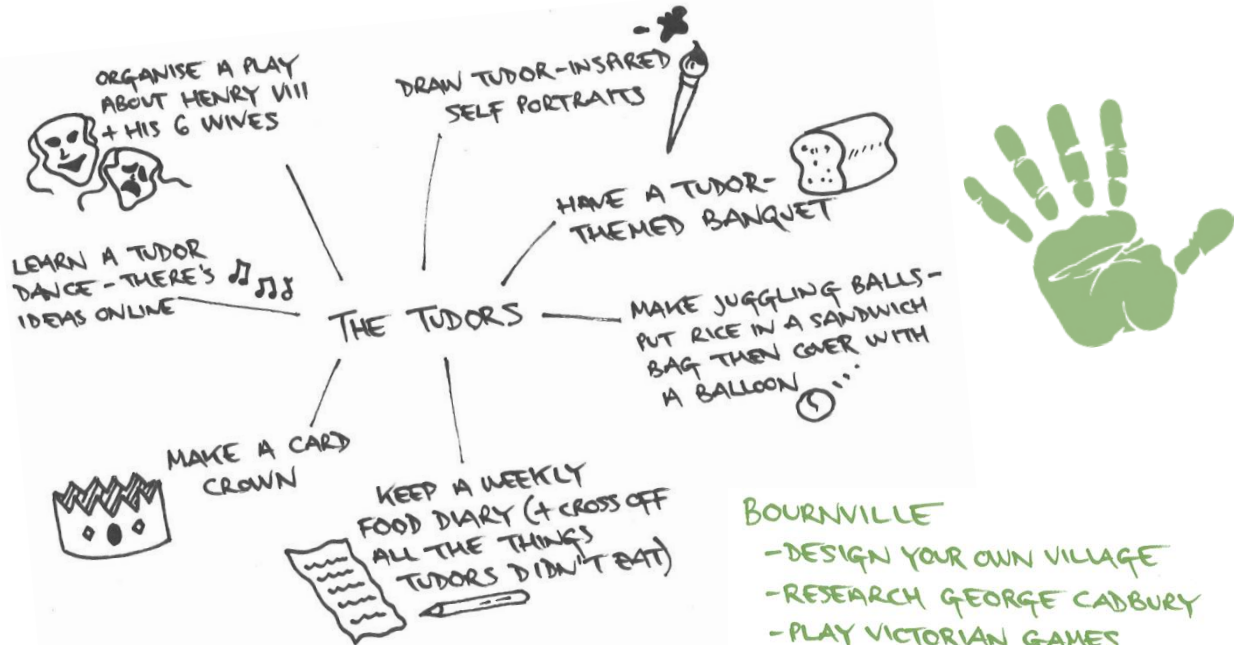 ORGANISE A PLAY
ABOUT HENRY VIII
+ HIS 6 WIVES
DRAW TUDOR-INSPIRED
SELF PORTRAITS
HAVE A TUDOR-
THEMED BANQUET
LEARN A TUDOR
DANCE - THERE'S
IDEAS ONLINE
THE TUDORS
MAKE JUGGLING BALLS -
PUT RICE IN A SANDWICH
BAG THEN COVER WITH
A BALLOON
MAKE A CARD
CROWN
KEEP A WEEKLY
FOOD DIARY (+ CROSS OFF
ALL THE THINGS
TUDORS DIDN'T EAT)
BOURNVILLE
- DESIGN YOUR OWN VILLAGE
- RESEARCH GEORGE CADBURY
- PLAY VICTORIAN GAMES